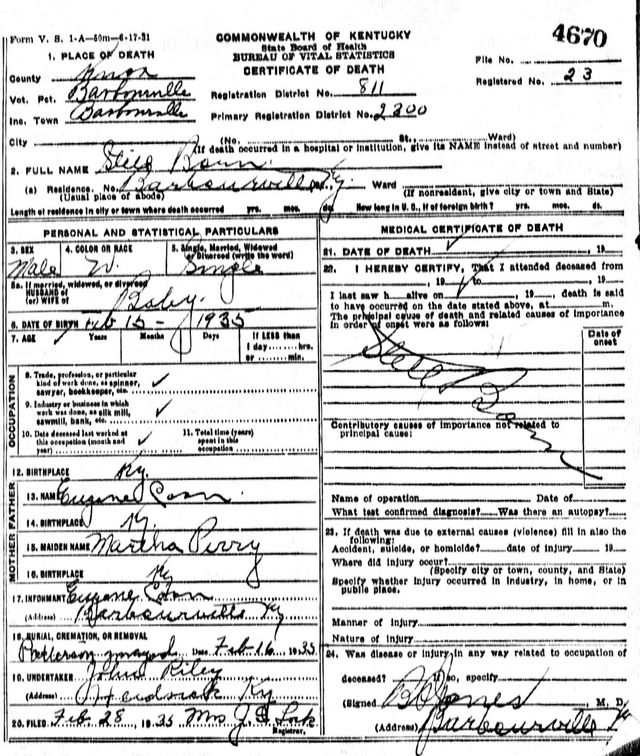 Form V. S. 1-A—50m—6-17-31
COMMONWEALTH OF KENTUCKY
State Board of Health
BUREAU OF VITAL STATISTICS
CERTIFICATE OF DEATH
4670
File No.
Registered No. 23
1. PLACE OF DEATH
County Knox
Vot. Pct. Barbourville
Inc. Town Barbourville
Registration District No. 811
Primary Registration District No. 2300
City (No. St., Ward)
(If death occurred in a hospital or institution, give its NAME instead of street and number)
2. FULL NAME Still Born
(a) Residence. No. Barbourville Ky. Ward
(Usual place of abode) (If nonresident, give city or town and State)
Length of residence in city or town where death occurred yrs. mos. ds. How long in U. S., if of foreign birth? yrs. mos. ds.
PERSONAL AND STATISTICAL PARTICULARS
3. SEX Male
4. COLOR OR RACE W.
5. Single, Married, Widowed or Divorced (write the word) Single
5a. If married, widowed, or divorced
HUSBAND of
(or) WIFE of Baby.
6. DATE OF BIRTH Feb 15 - 1935
7. AGE Years Months Days If LESS than
1 day hrs.
or min.
OCCUPATION
8. Trade, profession, or particular
kind of work done, as spinner,
sawyer, bookkeeper, etc.
9. Industry or business in which
work was done, as silk mill,
sawmill, bank, etc.
10. Date deceased last worked at
this occupation (month and
year)
11. Total time (years)
spent in this
occupation
12. BIRTHPLACE Ky.
FATHER
13. NAME Eugene
14. BIRTHPLACE Ky.
MOTHER
15. MAIDEN NAME Martha Perry
16. BIRTHPLACE Ky
17. INFORMANT Eugene
(Address) Barbourville Ky
18. BURIAL, CREMATION, OR REMOVAL
Patterson Date Feb 16, 1935
19. UNDERTAKER John Riley
(Address) Ky
20. FILED Feb 28, 1935 Mrs J
Registrar.
MEDICAL CERTIFICATE OF DEATH
21. DATE OF DEATH , 19
22. I HEREBY CERTIFY, That I attended deceased from
, 19 to , 19
I last saw h alive on , 19 , death is said
to have occurred on the date stated above, at m.
The principal cause of death and related causes of importance
in order of onset were as follows:
Date of
onset
Still Born
Contributory causes of importance not related to
principal cause:
Name of operation Date of
What test confirmed diagnosis? Was there an autopsy?
23. If death was due to external causes (violence) fill in also the
following:
Accident, suicide, or homicide? date of injury 19
Where did injury occur?
(Specify city or town, county, and State)
Specify whether injury occurred in industry, in home, or in
public place.
Manner of injury
Nature of injury
24. Was disease or injury in any way related to occupation of
deceased? If so, specify
(Signed) Jones M. D.
(Address) Barbourville Ky